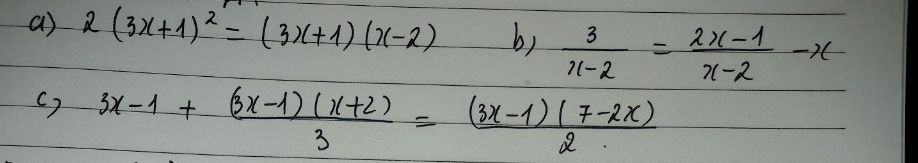 a) 2 (3x+1)² = (3x+1)(x-2) b) 3/(x-2) = (2x-1)/(x-2) - x
c) 3x-1 + (3x-1)(x+2)/3 = (3x-1)(7-2x)/2.